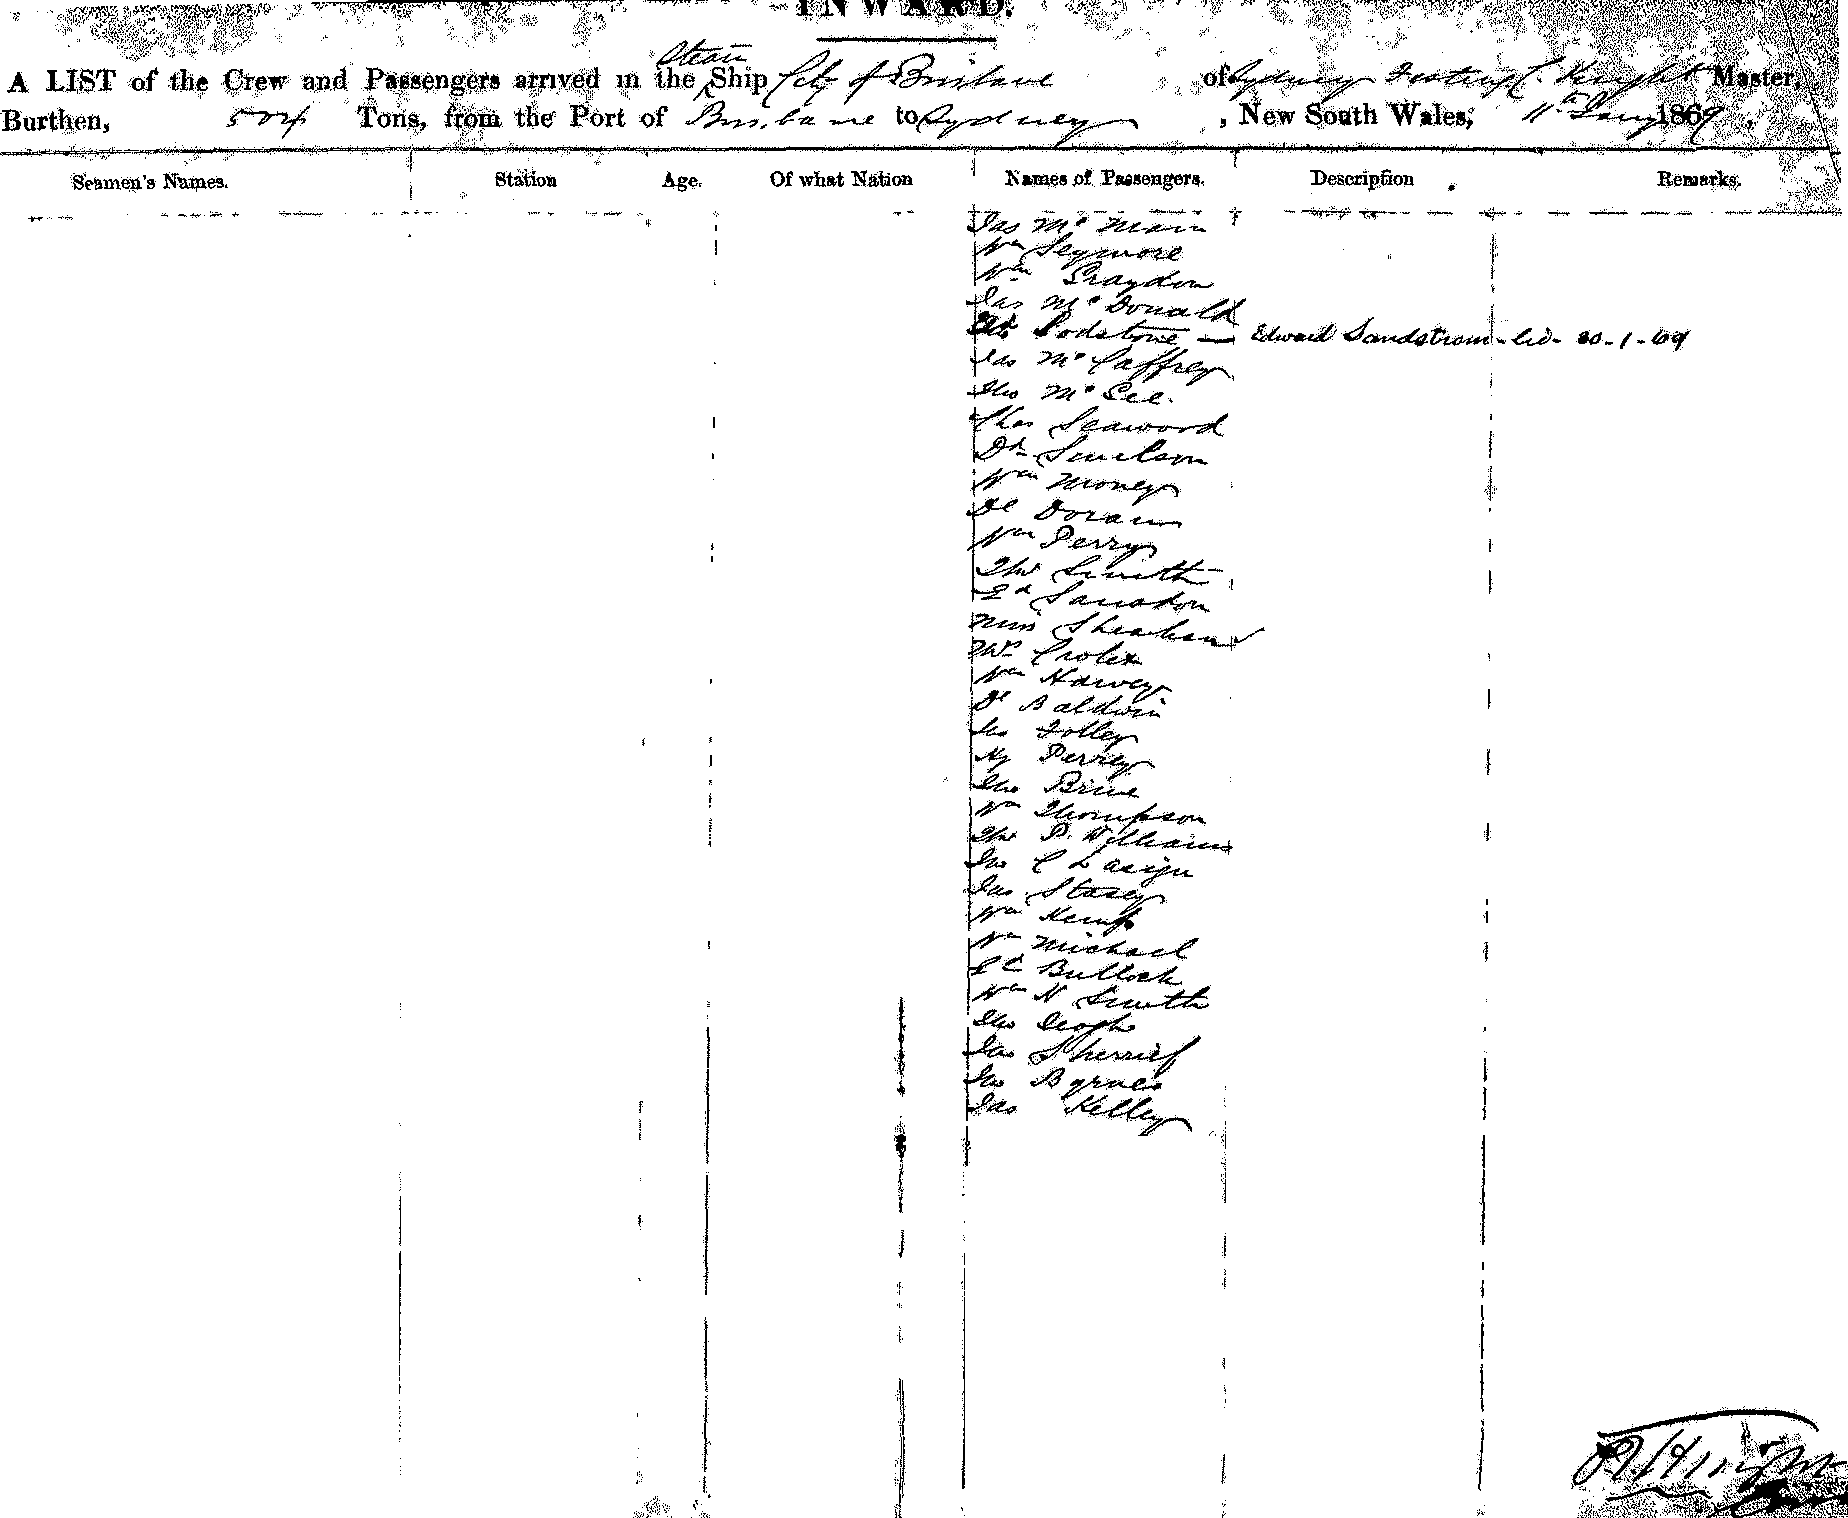 INWARD.
A LIST of the Crew and Passengers arrived in the Steam Ship City of Brisbane of Sydney C. Knight Master,
Burthen, 504 Tons, from the Port of Brisbane to Sydney, New South Wales, 11th Jany 1869.
Seamen's Names. Station Age. Of what Nation Names of Passengers. Description Remarks.
Jas Mc
Wm Seymore
Wm Graydon
Jas Mc Donald
Edward Sandstrom 20-1-69
Jas Mc Caffrey
Thos Mc Gee.
Chas Seawood
Dd
Wm Money
Dl Doran
Wm Perry
Thos Smith
Ed
Miss Sheahan
Wm Harvey
Dl Baldwin
Jno Folley
Hy Perrey
Thos
Wm Thompson
Thos P. Williams
Jno C
Jas Stasey
Wm Kemp
Wm Michael
Bullock
Wm H Smith
Thos
Jas Sherrief
Jno Byrnes
Jas Kelley
Knight